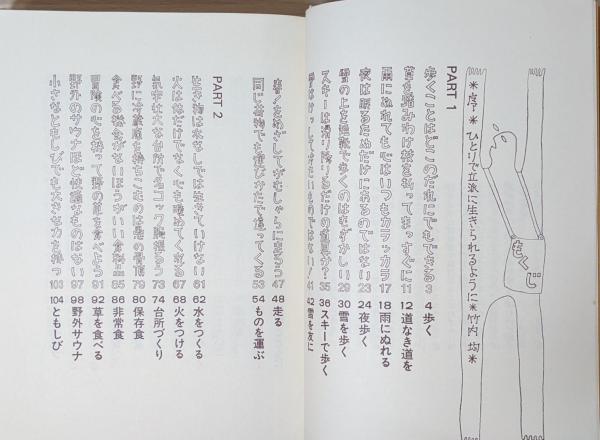 もくじ
*序*ひとりで立派に生きられるように*竹内均*
PART 1
歩くことはどこのだれにでもできる 3
4 歩く
草を踏みわけ枝を払ってまっすぐに 11
12 道なき道を
雨にぬれても心はいつもカラッカラ 17
18 雨にぬれる
夜は眠るためだけにあるのではない 23
24 夜歩く
雪の上を忍靴で歩くのはむずかしい 29
30 雪を歩く
スキーは滑り降りるだけの道具か? 35
36 スキーで歩く
41
42 雪を友に
春/えをめざしてがむしゃらに走ろう 47
48 走る
同じ荷物でも運びかたで違ってくる 53
54 ものを運ぶ
PART 2
生き物は水なしでは生きていけない 61
62 水をつくる
火は体だけでなく心も暖めてくれる 67
68 火をつける
気宇壮大な台所で名コック腕振るう 73
74 台所づくり
野に冷蔵庫を持ちこむのは愚の骨頂 79
80 保存食
食べる機会がないほうがいい食料品 85
86 非常食
冒険の心を持って野の草を食べよう 91
92 草を食べる
野外のサウナほど快適なものはない 97
98 野外サウナ
小さなともしびでも大きな力を持つ 103
104 ともしび